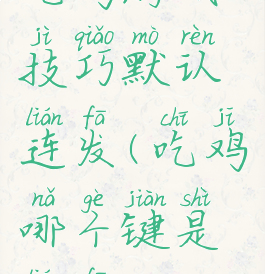 jì qiǎo mò rèn
技巧默认
lián fā chī jī
连发(吃鸡
nǎ gè jiàn shì
哪个键是